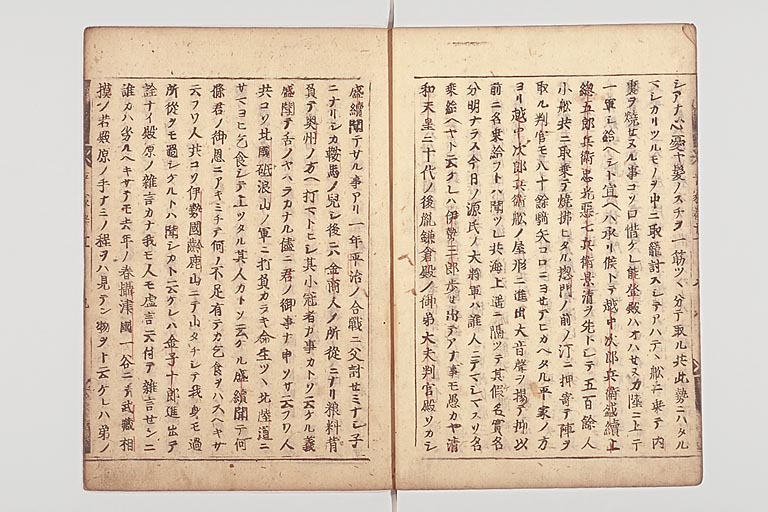 シアナ心憂ヤ髪ノスチヲ一筋ツヽ分テ取ル共此勢ニハタル
マシカリツルモノヲ中ニ取籠討スシテアハテヽ舩ニ乗テ内
裏ヲ焼セヌル事コソ口惜ケレ能登殿ハオハセヌカ陸ニ上テ
一軍シ給ヘシト宣ヘハ承リ候トテ越中次郎兵衛盛續上
總五郎兵衛忠光悪七兵衛景清ヲ先トシテ五百餘人
小舩共ニ取乗テ焼拂ヒタル惣門ノ前ノ汀ニ押寄テ陣ヲ
取ル判官モ八十餘騎矢コロニヨセテヒカヘタル平家ノ方
ヨリ越中次郎兵衛舩ノ屋形ニ進出大音聲ヲ揚テ抑以
前ニ名乗給フトハ聞ツレ共海上遥ニ隔ツテ其假名實名
分明ナラス今日ノ源氏ノ大將軍ハ誰人ニテマシマスソ名
乗給ヘヤト云ケレハ伊勢三郎歩セ出テアナ事モ愚カヤ清
和天皇ニ十代ノ後胤鎌倉殿ノ御弟大夫判官殿ソカシ
盛續聞テサル事アリ一年平治ノ合戦ニ父討セミナシ子
ニナリシカ鞍馬ノ兒シ後ニハ金商人ノ所從ニナリ粮料背
負テ奥州ノ方ヘ打マトヒシ其小冠者カ事カトソ云ケル義
盛陸テ舌ノヤハラカナル儘ニ君ノ御事ナ申ツサ云フワ人
共コソ北國砥浪山ノ軍ニ打負カラキ命生ツヽ北陸道ニ
サマヨヒ乞食シテ上ツタル其人カトソ云ケル盛續聞テ何
條君ノ御恩ニアキミチテ何ノ不足有テカ乞食ヲハスヘキサ
云フワ人共コソ伊勢國鈴鹿山ニテ山タチシテ我身モ過
所從タモ過シケルトハ聞シカト云ケレハ金子十郎進出テ
詮ナイ殿原ノ雜言カナ我モ人モ虚言云付テ雜言セシニ
誰カハ劣ルヘキサテモ去年ノ春攝津國一谷ニテ武藏相
摸ノ若殿原ノ手ナミノ程ヲハ見テン物ヲト云ケレハ弟ノ